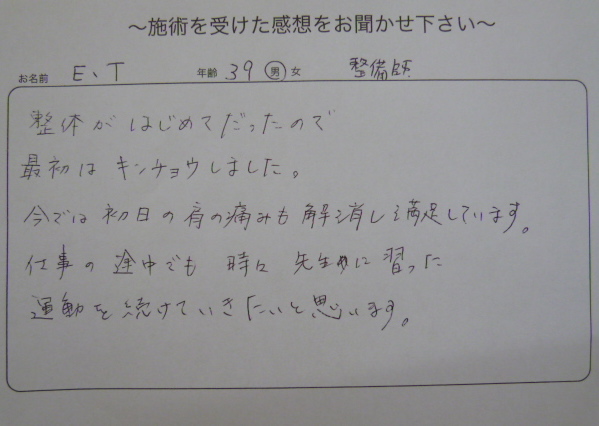 ～施術を受けた感想をお聞かせ下さい～
お名前 E、T 年齢 39 男 女 整備師
整体が はじめてだったので
最初は キンチョウしました。
今では 初日の肩の痛みも 解消し満足しています。
仕事の 途中でも 時々 先生に 習った
運動を 続けていきたいと思います。